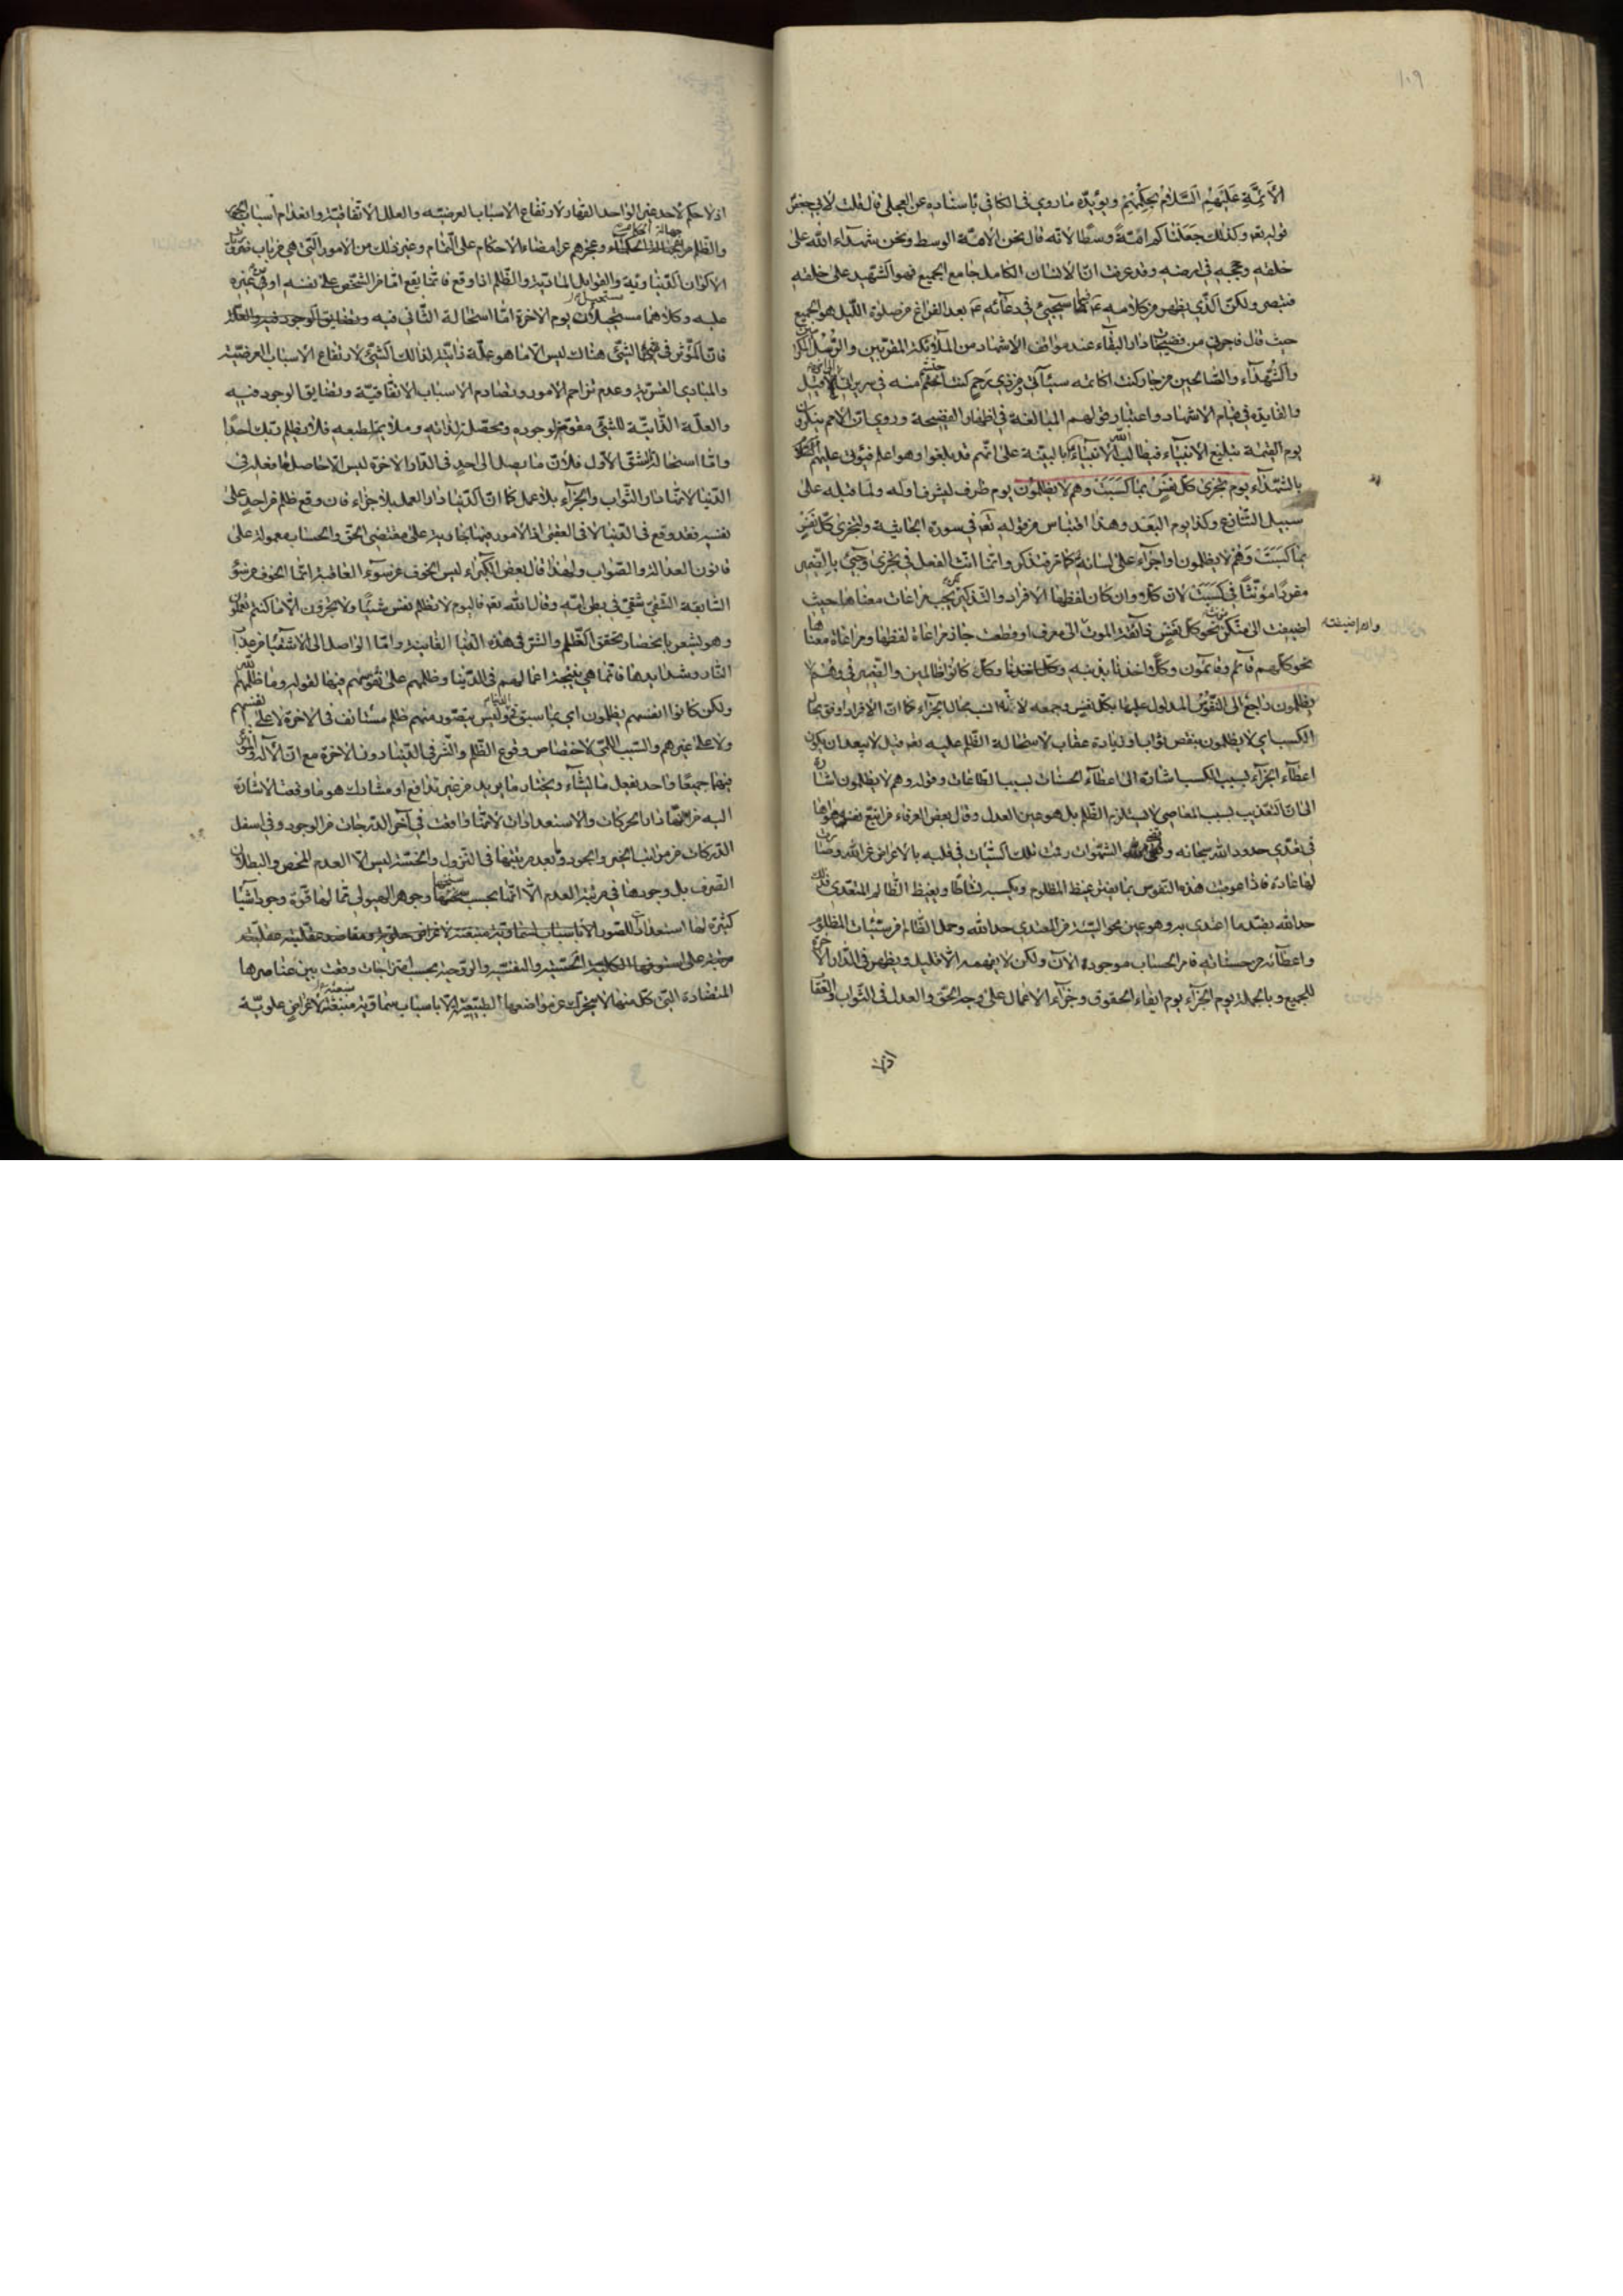 ١٠٩
الأئمّة عَلَيهِم السَّلامُ بحِكَمِهم ويؤيّده ما روي في الكافي باسناده عن العجلي قال قلت لابي جعفر
قوله تعـ وكذلك جعلناكم امّةً وسطًا لاته قال نحن الامّة الوسط ونحن شهداء الله على
خلقه وحججه في ارضه وقد عرفت انّ الانسان الكامل جامع الجميع فهو الشهيد على خلقه
فتبصر ولكنّ الّذي يظهر من كلامه عـ فيما سيجيئ في دعائه عـ بعد الفراغ من صلوة اللّيل هو الجميع
حيث قال فاجرني من فضيحات دار البقاء عند مواقف الاشهاد من الملآئكة المقرّبين والرّسل المكرمين
والشّهدآء والصّالحين من جار كنت اكاتمه سيّآتي ومن ذي رحم كنت احتشم منه في سريراتي
والفايدة في قيام الاشهاد واعتبار قولهم المبالغة في اظهار الفضيحة وروي انّ الامم ينكرون
يوم القيمة تبليغ الانبيآء فيطالب الله الانبيآء بالبيّنة على انّهم قد بلّغوا وهو اعلم فيؤتى عليهم
بالشّهدآء يوم تجزى كلّ نفسٍ بما كسبت وهم لا يظلمون يوم ظرف ليشرف اوله ولما قبله على
سبيل التّنازع وكذا يوم البعد وهذا اقتباس من قوله تعـ في سورة الجاثية ولتجزى كلّ نفسٍ
بما كسبت وهم لا يظلمون اواجرآء على لسانه كما مرّ فتذكر وانّما انّث الفعل في تجزى وجيئ بالضّمير
مفردًا مؤنّثًا في كسبت لان كلّ وان كان لفظها الافراد والتذكير يجب مراعات معناها حيث
اضيفت الى منكّر نحو كلّ نفسٍ ذآئقة الموت الى معرف او قطعت جاز مراعاة لفظها ومراعاة معناها
وان اضيفت
نحو كلّهم قآئم وقآئمون وكلًّا اخذنا بذنبه وكلّ كانوا ظالمين والضّمير في وهم لا
يظلمون راجع الى النّفوس المدلول عليها بكلّ نفس وجمعه لانّه انسب بحال الجزآء كما انّ الافراد اوفق بحال
الكسب اي لا يظلمون بنقص ثواب او زيادة عقاب لاستحالة الظّلم عليه تعـ قيل لا يبعد ان يكون
اعطآء الجزآء بسبب الكسب اشارة الى اعطآء الحسنات بسبب الطّاعات وقوله وهم لا يظلمون اشارة
الى انّ التّعذيب بسبب المعاصي لا يستلزم الظّلم بل هو عين العدل وقال بعض العرفاء من اتّبع نفسه هواها
في تعدّي حدود الله سبحانه الشّهوات رتبت تلك السّيّآت في قلبه بالاعراض عن الله وصارت
لها عادة فاذا عوقبت هذه النّفوس بما يغيظ المظلوم ويكسبه نشاطًا ويغيظ الظّالم المتعدّي
حد الله بقدر ما اعتدى به وهو عين محو السّيّئة من المعتدي حد الله وحمل الظّالم من سيّئات المظلوم
واعطآئه من حسناته فامر الحساب موجود الآن ولكن لا يفهمه الا قليل ويظهر في الدّار الآخرة
للجميع وبالجملة يوم الجزآء يوم ايفاء الحقوق وجزآء الاعمال على وجه الحقّ والعدل في الثّواب والعقاب
اذ لا
اذ لا حكم لاحد غير الواحد القهّار لارتفاع الاسباب العرضيّه والعلل الاتّفاقيّة وانعدام اسباب
والظّلم من جهالة الحكّام وعجزهم عن امضاء الاحكام على التّمام وغير ذلك من الامور الّتي هي من باب
الاكوان الدّنياويّة والقوابل المادّيّة والظّلم اذا وقع فانّما يقع امّا من الشّخص على نفسه او من غيره
عليه وكلاهما مستحيل يوم الآخرة امّا استحالة الثّاني فيه
فانّ المؤثّر في الشّيئ هناك ليس الا ما هو علّة ذاتيّة لذلك الشّيئ لارتفاع الاسباب العرضيّة
والمبادي القسريّة وعدم تزاحم الامور وتصادم الاسباب الاتّفاقيّة وتضايق الوجود فيه
والعلّة الذّاتيّة للشّيئ مقوّم لوجوده ومحصّل لذاته وملايم لطبعه فلا يظلم ربّك احدًا
وامّا استحالة الشّقّ الاوّل فلانّ ما يصل الى احدٍ في الدّار الآخرة ليس الا حاصل ما فعله في
الدّنيا لانّها دار الثّواب والجزآء بلا عمل كما انّ الدّنيا دار العمل بلا جزاء فان وقع ظلم من احدٍ على
نفسه فقد وقع في الدّنيا لا في العقبى اذ الامور فيها جارية على مقتضى الحقّ والحساب معمولة على
قانون العدالة والصّواب ولهذا قال بعض الكبراء ليس الخوف من سوء العاقبة انّما الخوف من سوء
السّابقة الشّقيّ شقيّ في بطن امّه وقال الله تعـ فاليوم لا تظلم نفس شيئًا ولا تجزون الّا ما كنتم تعملون
وهو يشعر بانحصار تحقّق الظّلم والشّر في هذه الدّنيا الفانية وامّا الواصل الى الاشقيا من عذاب
النّار وشدايدها فانّما هي نتيجة اعمالهم في الدّنيا وظلمهم على نفوسهم فيها لقوله وما ظلمهم الله
ولكن كانوا انفسهم يظلمون اي بما سبق وليس يتصوّر منهم ظلم مستانف في الآخرة لا على نفسهم
ولا على غيرهم والسّبب اللّمّي لاختصاص وقوع الظّلم والشّر في الدّنيا دون الآخرة مع انّ الاله
فيهما جميعًا واحد يفعل ما يشآء ويختار ما يريد من غير تدافع او مشارك هو ما وقعت الاشارة
اليه من انّها دار الحركات والاستعدادات لانّها واقعت في آخر الدّرجات من الوجود وفي اسفل
الدّركات من مراتب الخير والجود وما بعد مرتبتها في النّزول والخسّة ليس الا العدم المحض والبطلان
الصّرف بل وجودها في مرتبة العدم الا انّها بحسب سنخها وجوهر الهيولى ممّا لها قوّة وجود اشيآء
كثيرة لها استعدادات للصّور الا باسباب سماويّة منبعثة لاغراض
بين عناصرها
المتضادة الّتي كلّ منها لا يتحرّك عن مواضعها الطّبيعيّة الا باسباب سماويّة منبعثة لاغراضٍ علويّة